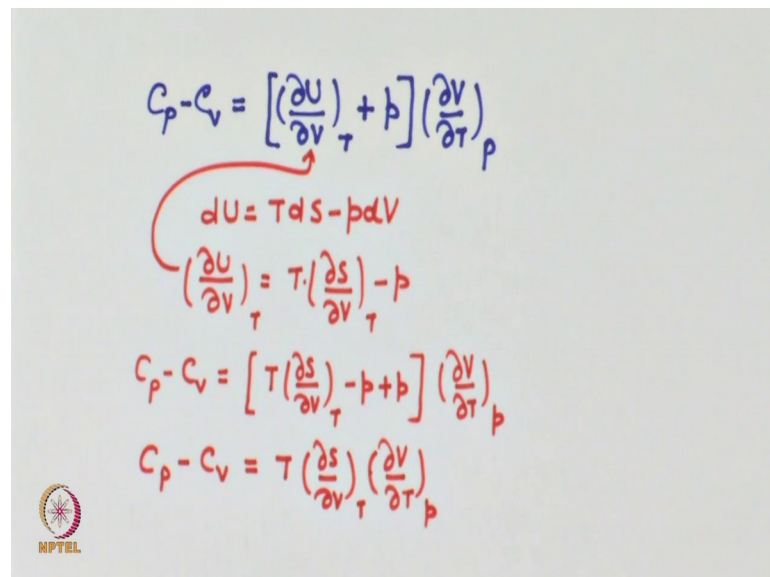 C_p - C_v = [(∂U/∂V)_T + p](∂V/∂T)_p
dU = TdS - pdV
(∂U/∂V)_T = T·(∂S/∂V)_T - p
C_p - C_v = [T(∂S/∂V)_T - p + p](∂V/∂T)_p
C_p - C_v = T(∂S/∂V)_T(∂V/∂T)_p
NPTEL